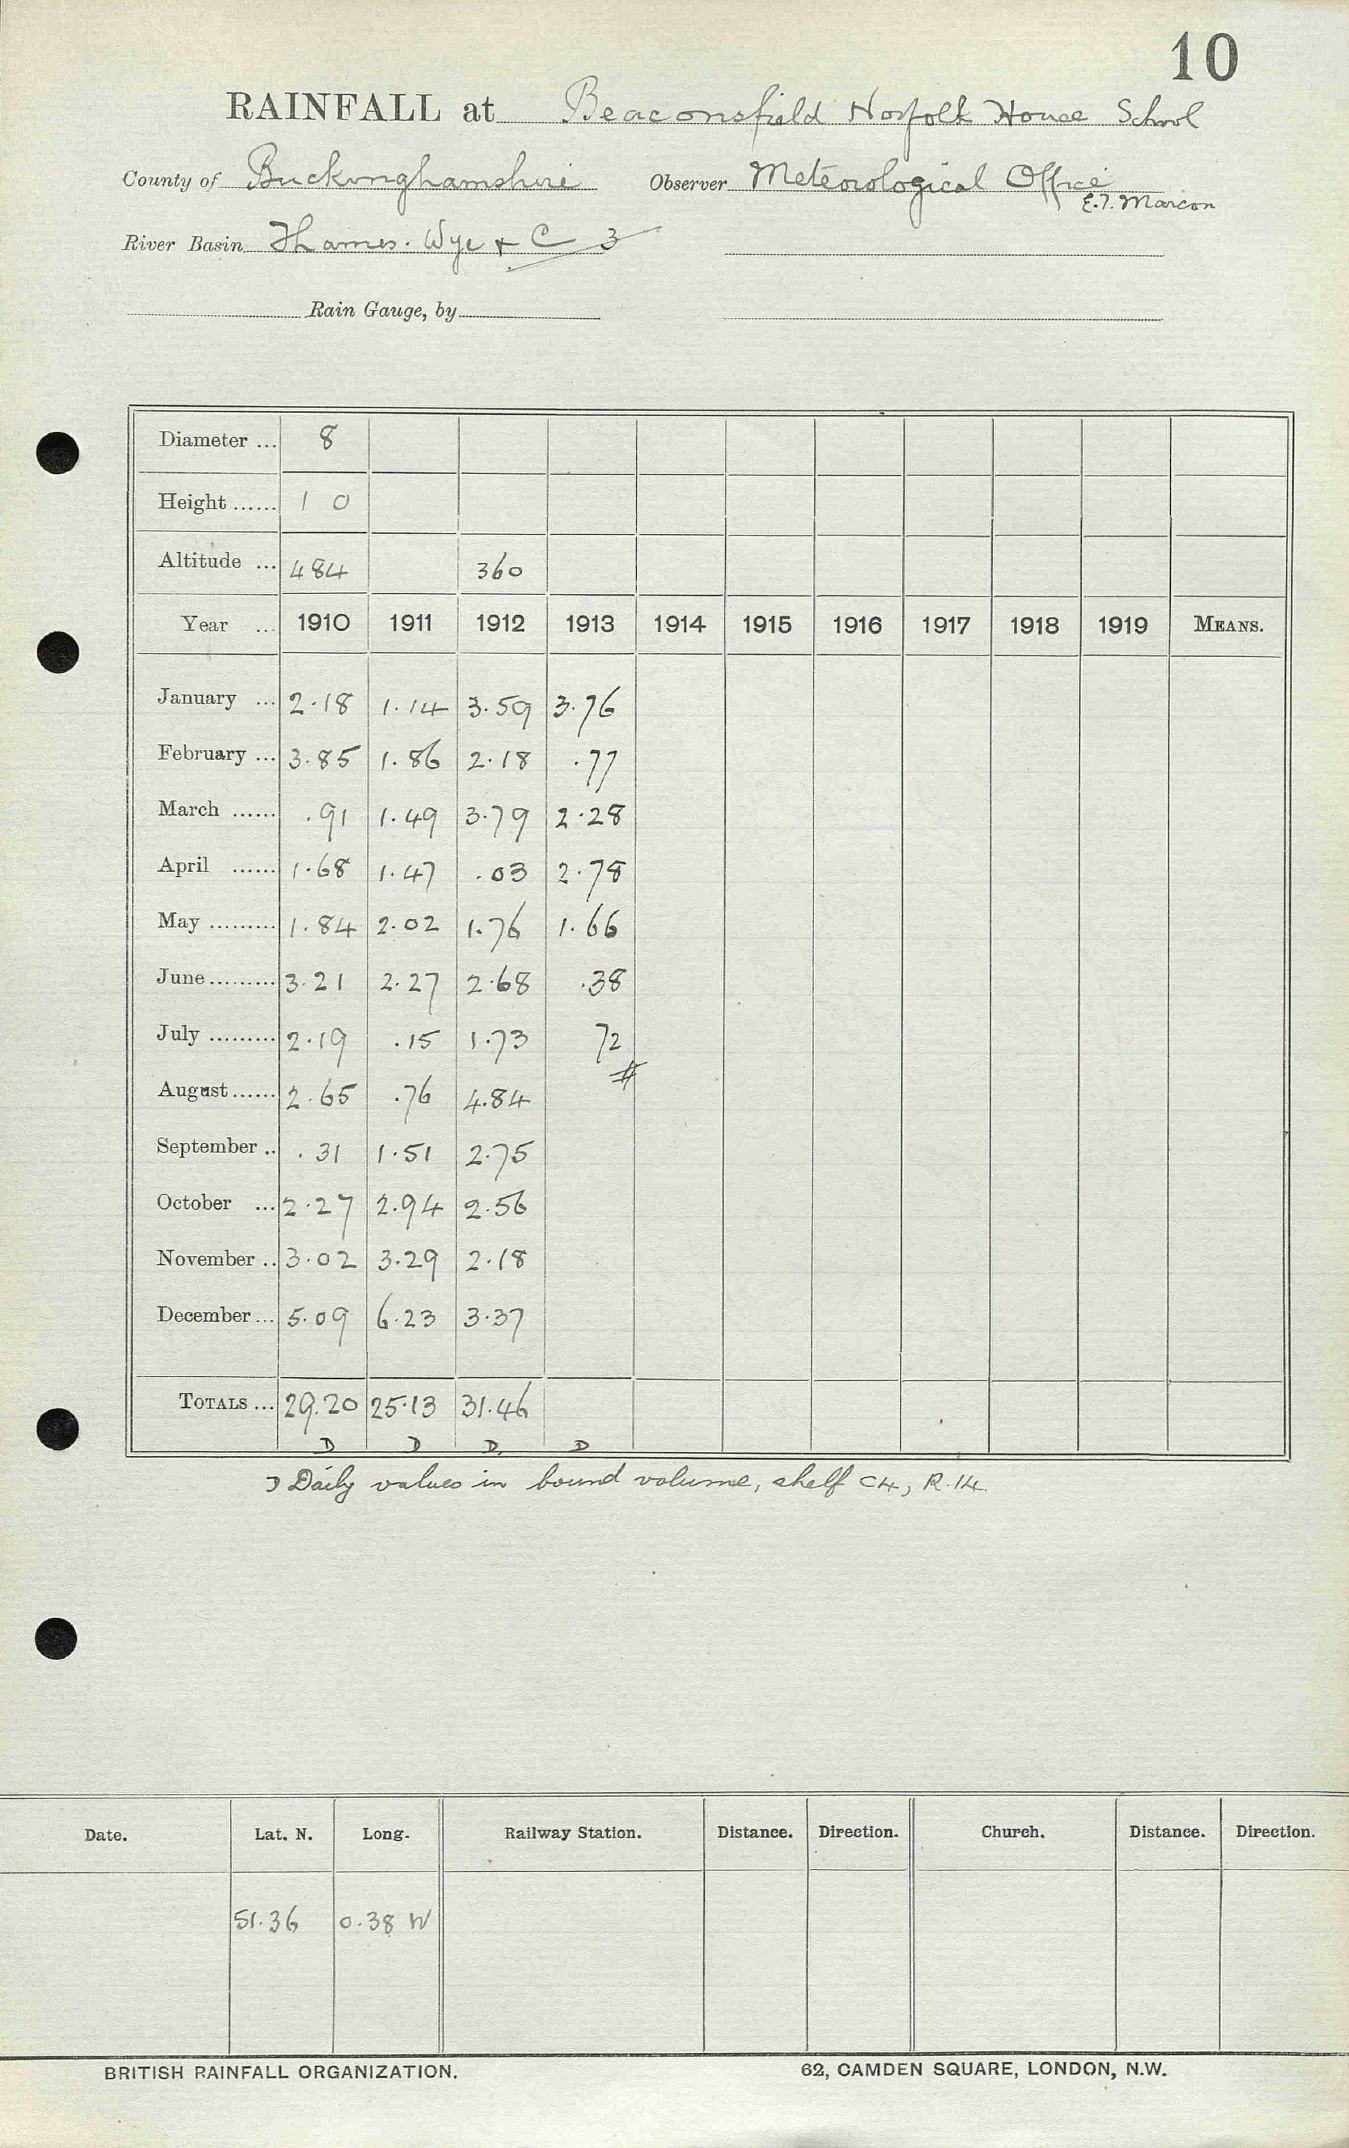 10
RAINFALL at Beaconsfield Norfolk House School
County of Buckinghamshire Observer Meteorological Office
E.T. Marcon
River Basin Thames. Wye & C 3
Rain Gauge, by
Diameter ... 8
Height ...... 1 0
Altitude ... 484 360
Year ... 1910 1911 1912 1913 1914 1915 1916 1917 1918 1919 MEANS.
January ... 2.18 1.14 3.59 3.76
February ... 3.85 1.86 2.18 .77
March ...... .91 1.49 3.79 2.28
April ...... 1.68 1.47 .03 2.78
May ......... 1.84 2.02 1.76 1.66
June ......... 3.21 2.27 2.68 .38
July ......... 2.19 .15 1.73 72
#
August ...... 2.65 .76 4.84
September .. .31 1.51 2.75
October ... 2.27 2.94 2.56
November .. 3.02 3.29 2.18
December ... 5.09 6.23 3.37
TOTALS ... 29.20 25.13 31.46
D D D D
D Daily values in bound volume, shelf C4, R.14.
Date. Lat. N. Long. Railway Station. Distance. Direction. Church. Distance. Direction.
51.36 0.38 W
BRITISH RAINFALL ORGANIZATION. 62, CAMDEN SQUARE, LONDON, N.W.